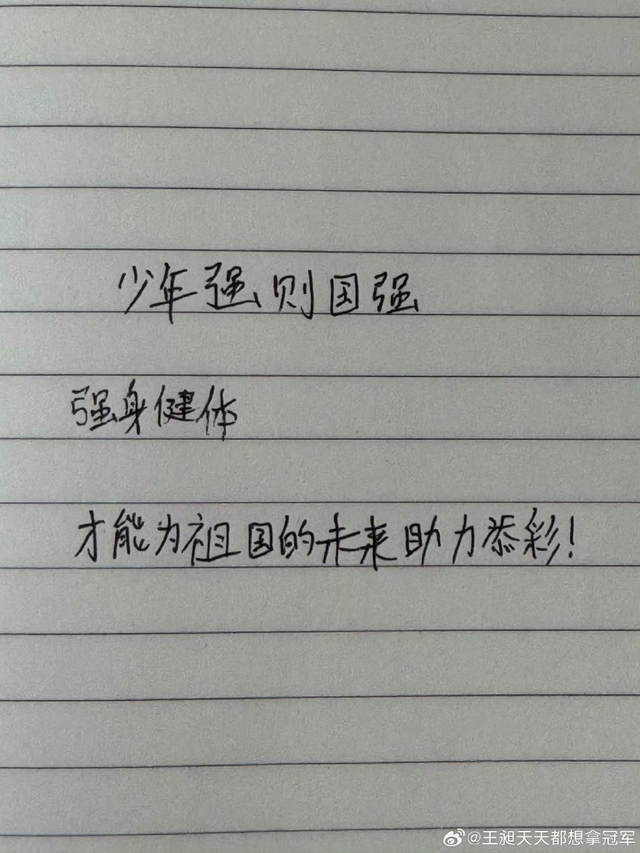 少年强则国强
强身健体
才能为祖国的未来助力添彩!
@王昶天天都想拿冠军